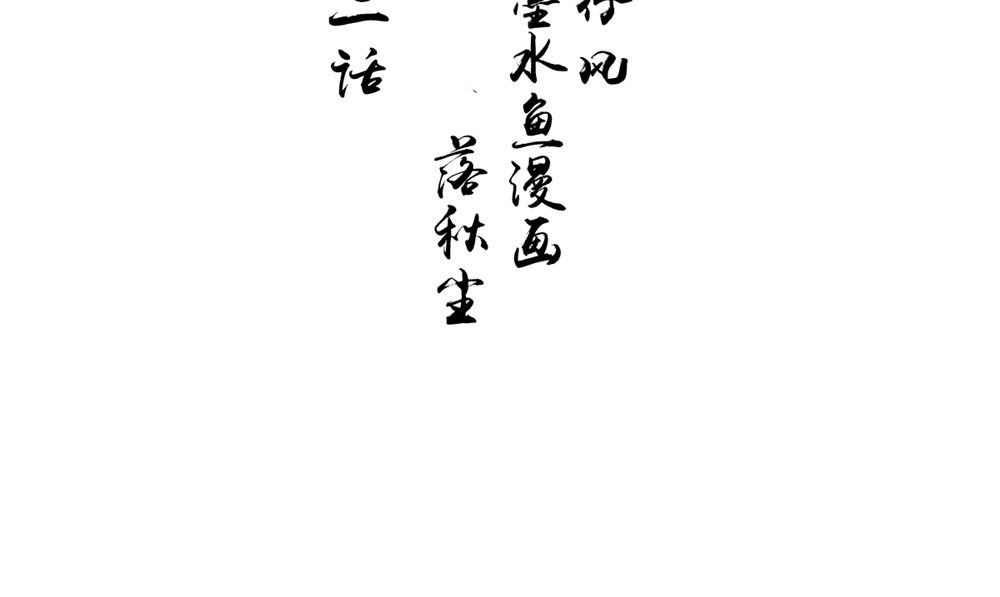 风
水鱼漫画
落秋尘
二话